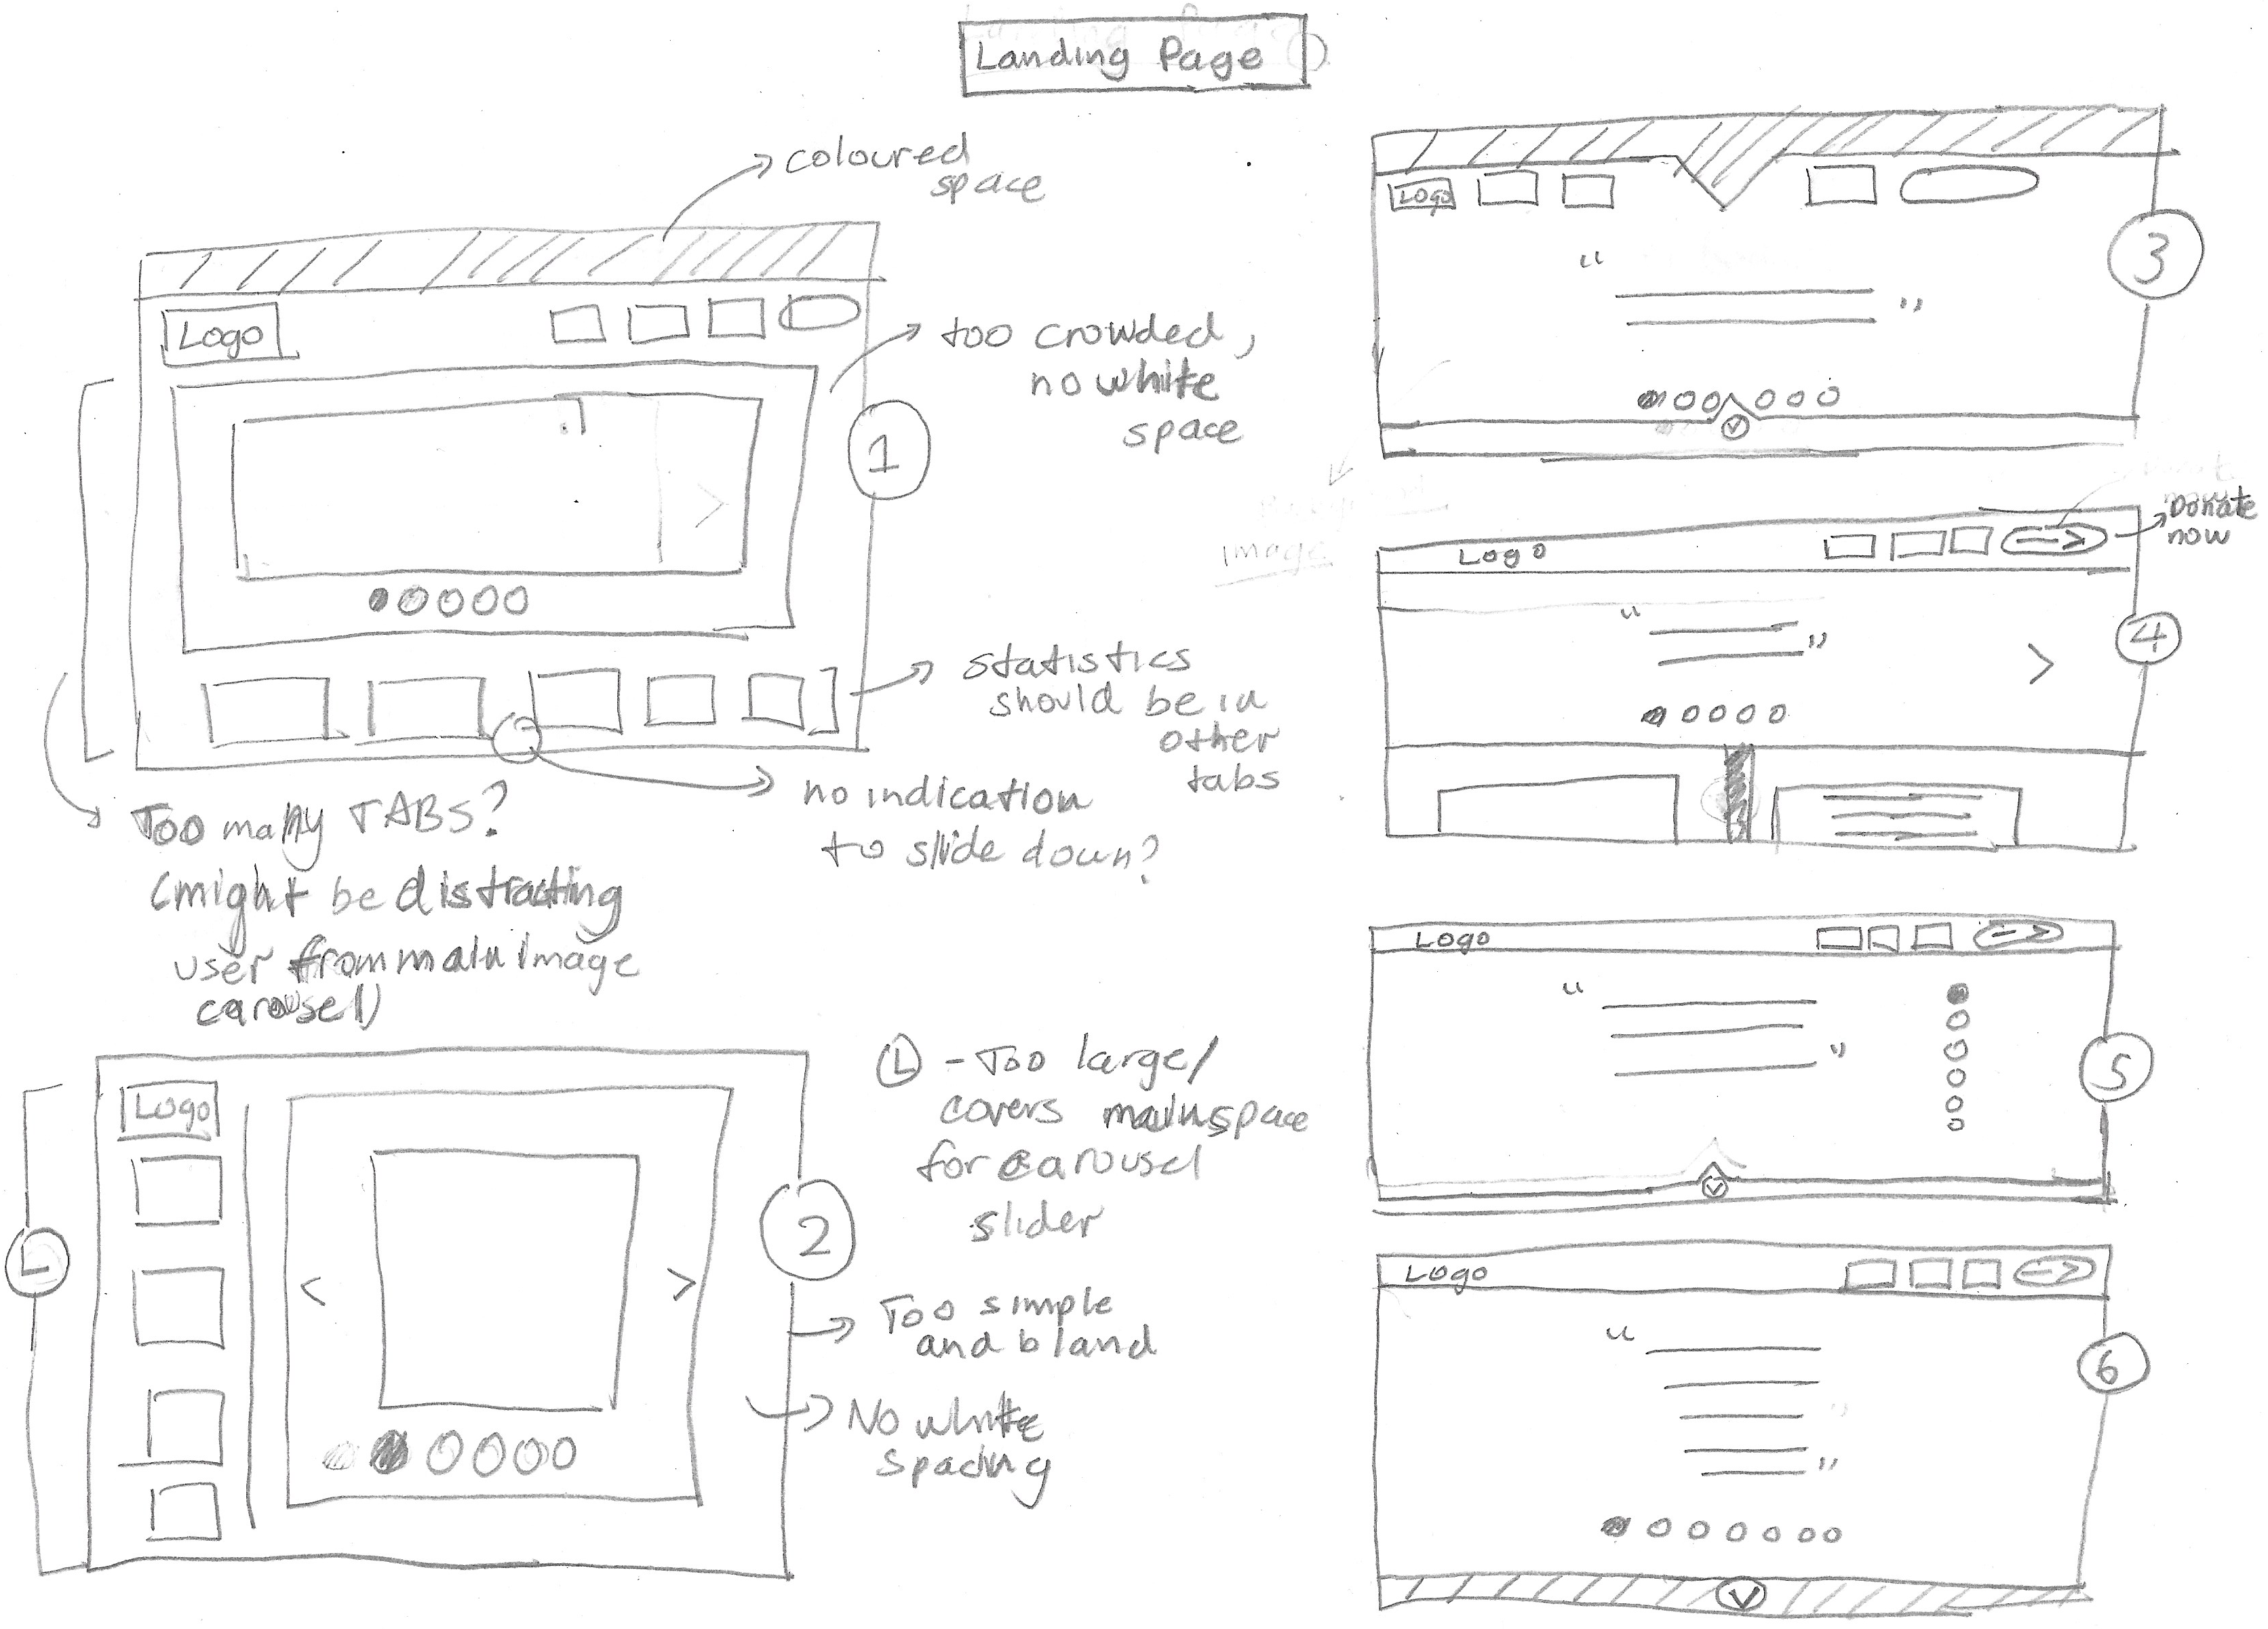 Landing Page
coloured
space
Logo
too crowded,
no white
space
1
statistics
should be in
other
tabs
no indication
to slide down?
Too many TABS?
(might be distracting
user from main image
carousel)
Logo
L
2
L - Too large/
covers mainspace
for carousel
slider
Too simple
and bland
No white
spacing
Logo
“
”
3
image
Logo
Donate
now
“
”
4
Logo
“
”
5
Logo
“
”
6